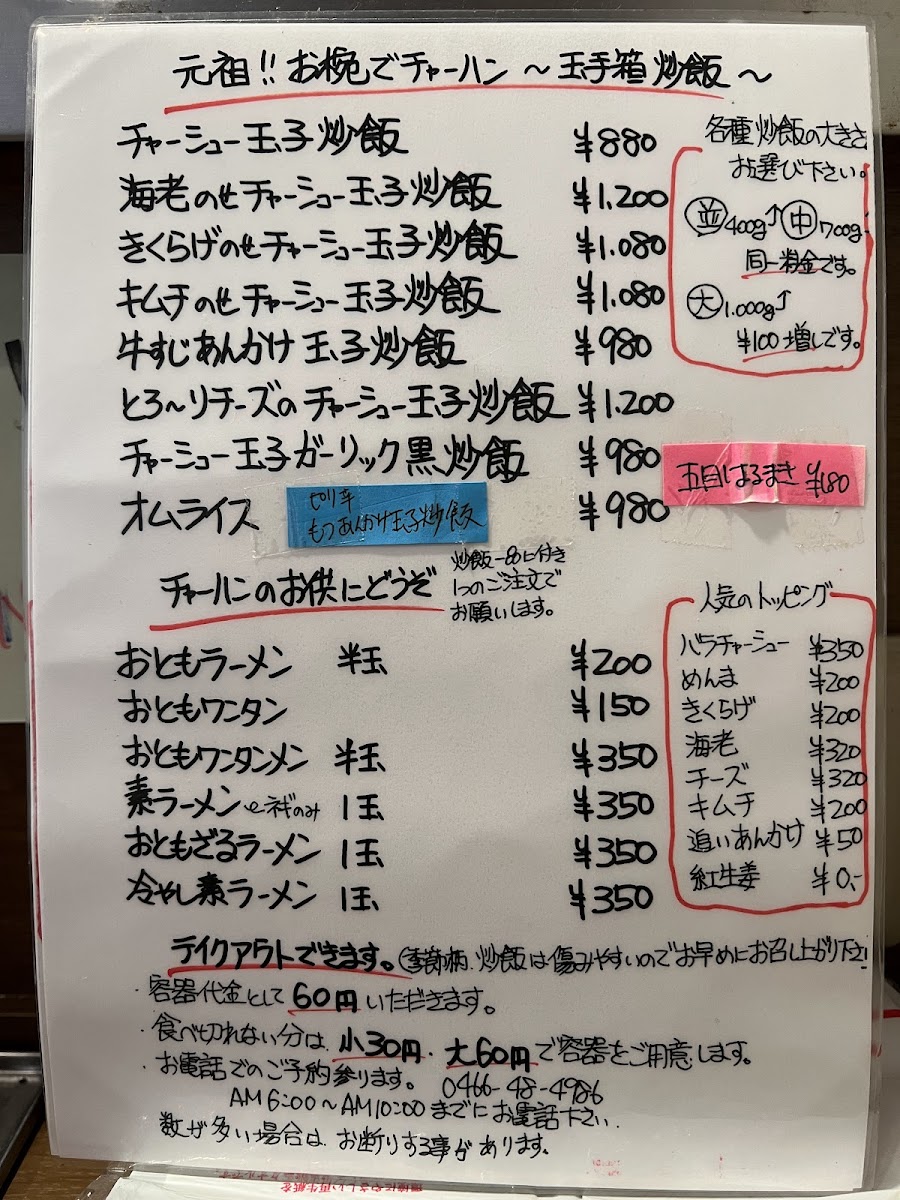 元祖!! お椀でチャーハン 〜 玉手箱 炒飯 〜
チャーシュー玉子炒飯 ¥880
海老のせチャーシュー玉子炒飯 ¥1.200
きくらげのせチャーシュー玉子炒飯 ¥1.080
キムチのせチャーシュー玉子炒飯 ¥1.080
牛すじあんかけ玉子炒飯 ¥980
とろ〜りチーズのチャーシュー玉子炒飯 ¥1.200
チャーシュー玉子ガーリック黒炒飯 ¥980
オムライス ¥980
ピリ辛
もつあんかけ玉子炒飯
各種炒飯の大きさ
お選び下さい。
並400g↑ 中700g
同一料金です。
大1.000g↑
¥100増しです。
五目はるまき ¥180
チャーハンのお供にどうぞ
炒飯一品に付き
1つのご注文で
お願いします。
おともラーメン 半玉 ¥200
おともワンタン ¥150
おともワンタンメン 半玉 ¥350
素ラーメン ネギのみ 1玉 ¥350
おともざるラーメン 1玉 ¥350
冷やし素ラーメン 1玉 ¥350
人気のトッピング
バラチャーシュー ¥350
めんま ¥200
きくらげ ¥200
海老 ¥320
チーズ ¥320
キムチ ¥200
追いあんかけ ¥50
紅生姜 ¥0.-
テイクアウトできます。(季節柄、炒飯は傷みやすいのでお早めにお召し上がり下さい
・容器代金として60円いただきます。
・食べ切れない分は、小30円、大60円で容器をご用意します。
・お電話でのご予約参ります。 0466-48-4986
AM6:00〜AM10:00までにお電話下さい.
数が多い場合は、お断りする事があります。